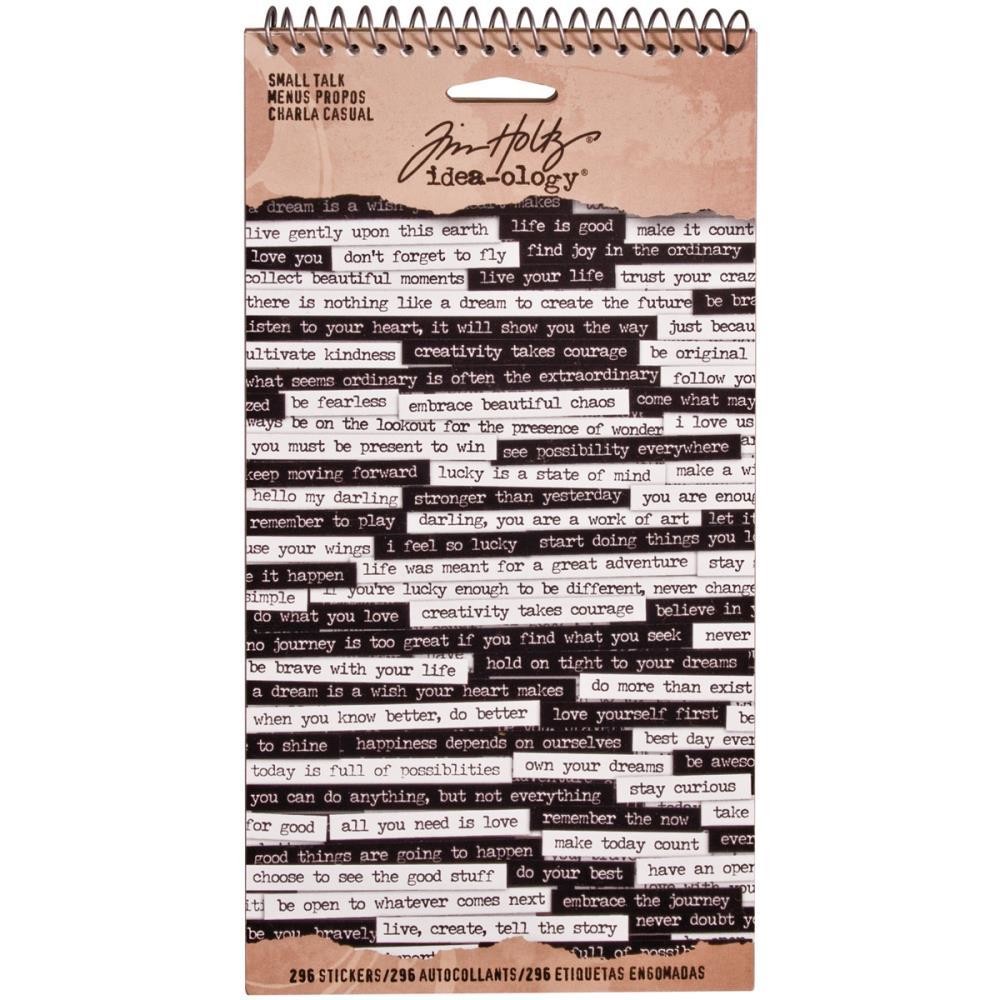 SMALL TALK
MENUS PROPOS
CHARLA CASUAL
Tim Holtz®
idea-ology®
a dream is a wish your heart makes
live gently upon this earth life is good make it count
love you don't forget to fly find joy in the ordinary
collect beautiful moments live your life trust your craz
there is nothing like a dream to create the future be bra
isten to your heart, it will show you the way just becau
ultivate kindness creativity takes courage be original
what seems ordinary is often the extraordinary follow you
zed be fearless embrace beautiful chaos come what may
ways be on the lookout for the presence of wonder i love us
you must be present to win see possibility everywhere
keep moving forward lucky is a state of mind make a wi
hello my darling stronger than yesterday you are enoug
remember to play darling, you are a work of art let it
use your wings i feel so lucky start doing things you l
e it happen life was meant for a great adventure stay
simple if you're lucky enough to be different, never change
do what you love creativity takes courage believe in y
no journey is too great if you find what you seek never
be brave with your life hold on tight to your dreams
a dream is a wish your heart makes do more than exist
when you know better, do better love yourself first be
to shine happiness depends on ourselves best day ever
today is full of possiblities own your dreams be aweso
you can do anything, but not everything stay curious
for good all you need is love remember the now take
good things are going to happen make today count ever
choose to see the good stuff do your best have an open
iti be open to whatever comes next embrace the journey
be you, bravely live, create, tell the story never doubt y
full of possib
296 STICKERS/296 AUTOCOLLANTS/296 ETIQUETAS ENGOMADAS